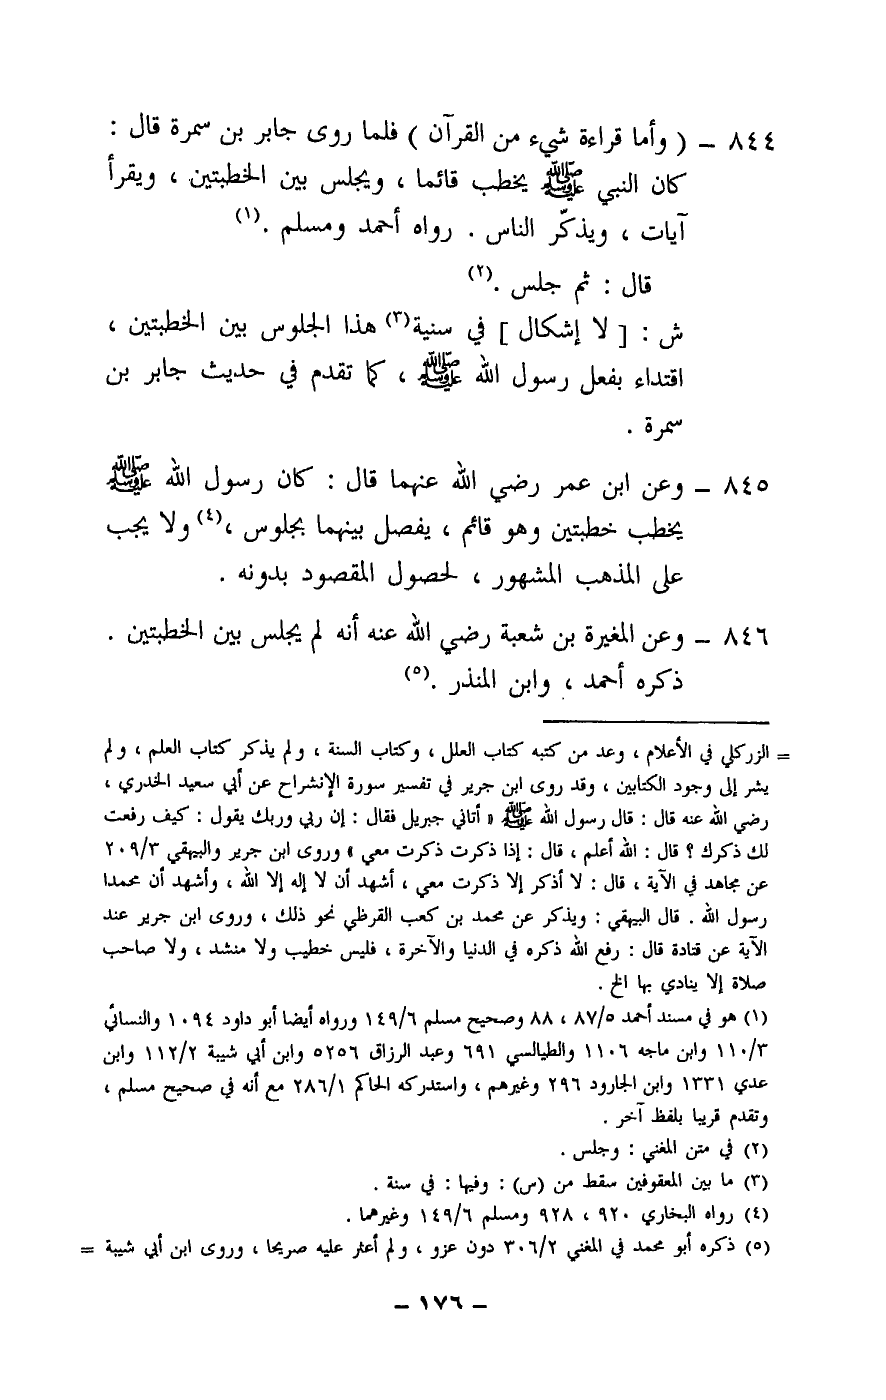 ٨٤٤ – ( وأما قراءة شيء من القرآن ) فلما روى جابر بن سمرة قال :
كان النبي ﷺ يخطب قائما ، ويجلس بين الخطبتين ، ويقرأ
آيات ، ويذكّر الناس . رواه أحمد ومسلم .(١)
قال : ثم جلس .(٢)
ش : [ لا إشكال ] في سنية(٣) هذا الجلوس بين الخطبتين ،
اقتداء بفعل رسول الله ﷺ ، كما تقدم في حديث جابر بن
سمرة .
٨٤٥ – وعن ابن عمر رضي الله عنهما قال : كان رسول الله ﷺ
يخطب خطبتين وهو قائم ، يفصل بينهما بجلوس ،(٤) ولا يجب
على المذهب المشهور ، لحصول المقصود بدونه .
٨٤٦ – وعن المغيرة بن شعبة رضي الله عنه أنه لم يجلس بين الخطبتين .
ذكره أحمد ، وابن المنذر .(٥)
= الزركلي في الأعلام ، وعد من كتبه كتاب العلل ، وكتاب السنة ، ولم يذكر كتاب العلم ، ولم
يشر إلى وجود الكتابين ، وقد روى ابن جرير في تفسير سورة الإنشراح عن أبي سعيد الخدري ،
رضي الله عنه قال : قال رسول الله ﷺ « أتاني جبريل فقال : إن ربي وربك يقول : كيف رفعت
لك ذكرك ؟ قال : الله أعلم ، قال : إذا ذكرت ذكرت معي » وروى ابن جرير والبيهقي ٢٠٩/٣
عن مجاهد في الآية ، قال : لا أذكر إلا ذكرت معي ، أشهد أن لا إله إلا الله ، وأشهد أن محمدا
رسول الله . قال البيهقي : ويذكر عن محمد بن كعب القرظي نحو ذلك ، وروى ابن جرير عند
الآية عن قتادة قال : رفع الله ذكره في الدنيا والآخرة ، فليس خطيب ولا منشد ، ولا صاحب
صلاة إلا ينادي بها الخ .
(١) هو في مسند أحمد ٨٧/٥ ، ٨٨ وصحيح مسلم ١٤٩/٦ ورواه أيضا أبو داود ١٠٩٤ والنسائي
١١٠/٣ وابن ماجه ١١٠٦ والطيالسي ٦٩١ وعبد الرزاق ٥٢٥٦ وابن أبي شيبة ١١٢/٢ وابن
عدي ١٣٣١ وابن الجارود ٢٩٦ وغيرهم ، واستدركه الحاكم ٢٨٦/١ مع أنه في صحيح مسلم ،
وتقدم قريبا بلفظ آخر .
(٢) في متن المغني : وجلس .
(٣) ما بين المعقوفين سقط من (س) : وفيها : في سنة .
(٤) رواه البخاري ٩٢٠ ، ٩٢٨ ومسلم ١٤٩/٦ وغيرهما .
(٥) ذكره أبو محمد في المغني ٣٠٦/٢ دون عزو ، ولم أعثر عليه صريحا ، وروى ابن أبي شيبة =
– ١٧٦ –